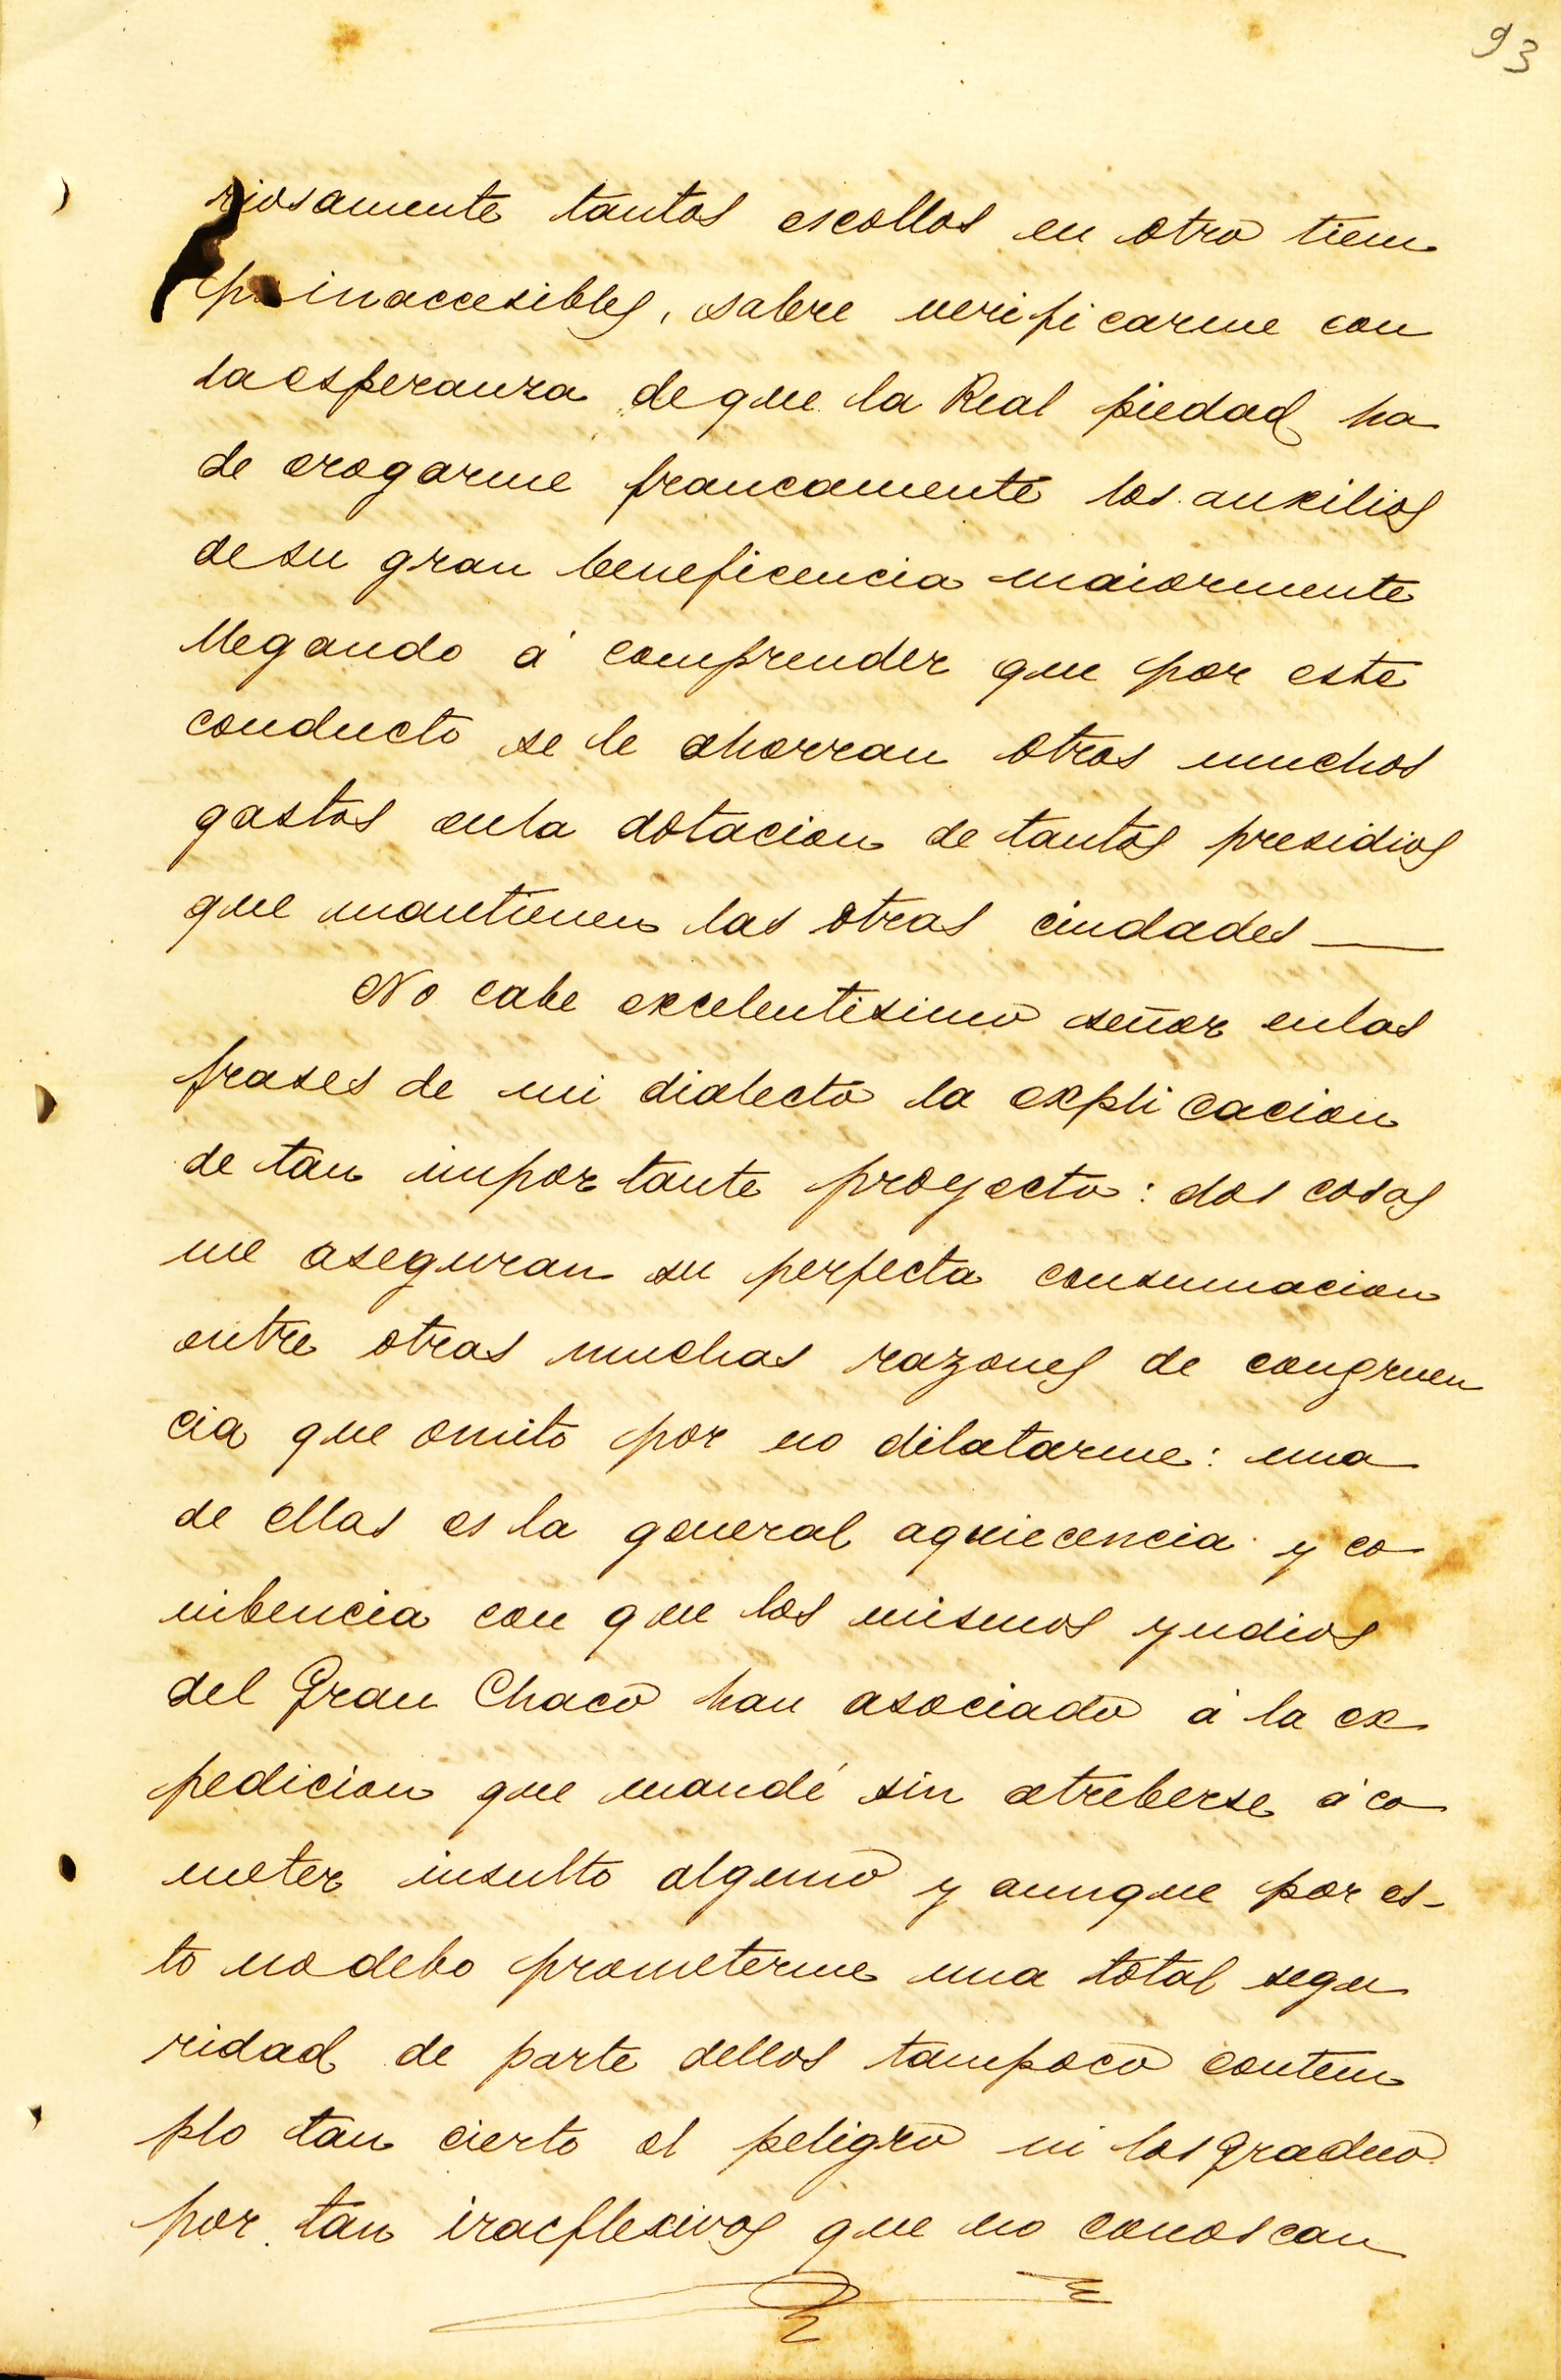 93
riosamente tantos escollos en otro tiem
po inaccesibles, sabre verificarme con
la esperanza de que la Real piedad ha
de erogarme francamente los auxilios
de su gran beneficencia maiormente
llegando á comprender que por este
conducto se le ahorran otros muchos
gastos en la dotacion de tantos presidios
que mantienen las otras ciudades —
No cabe excelentisimo señor en las
frases de mi dialecto la explicacion
de tan importante proyecto: dos cosas
me aseguran su perfecta consumacion
entre otras muchas razones de congruen
cia que omito por no dilatarme: una
de ellas es la general aquiecencia y co
nibencia con que los mismos yndios
del Gran Chaco han asociado á la ex
pedicion que mandé sin atreberse á co
meter insulto alguno y aunque por es-
to no debo prometerme una total segu
ridad de parte dellos tampoco contem
plo tan cierto el peligro ni los graduo
por tan irreflexivos que no conoscan